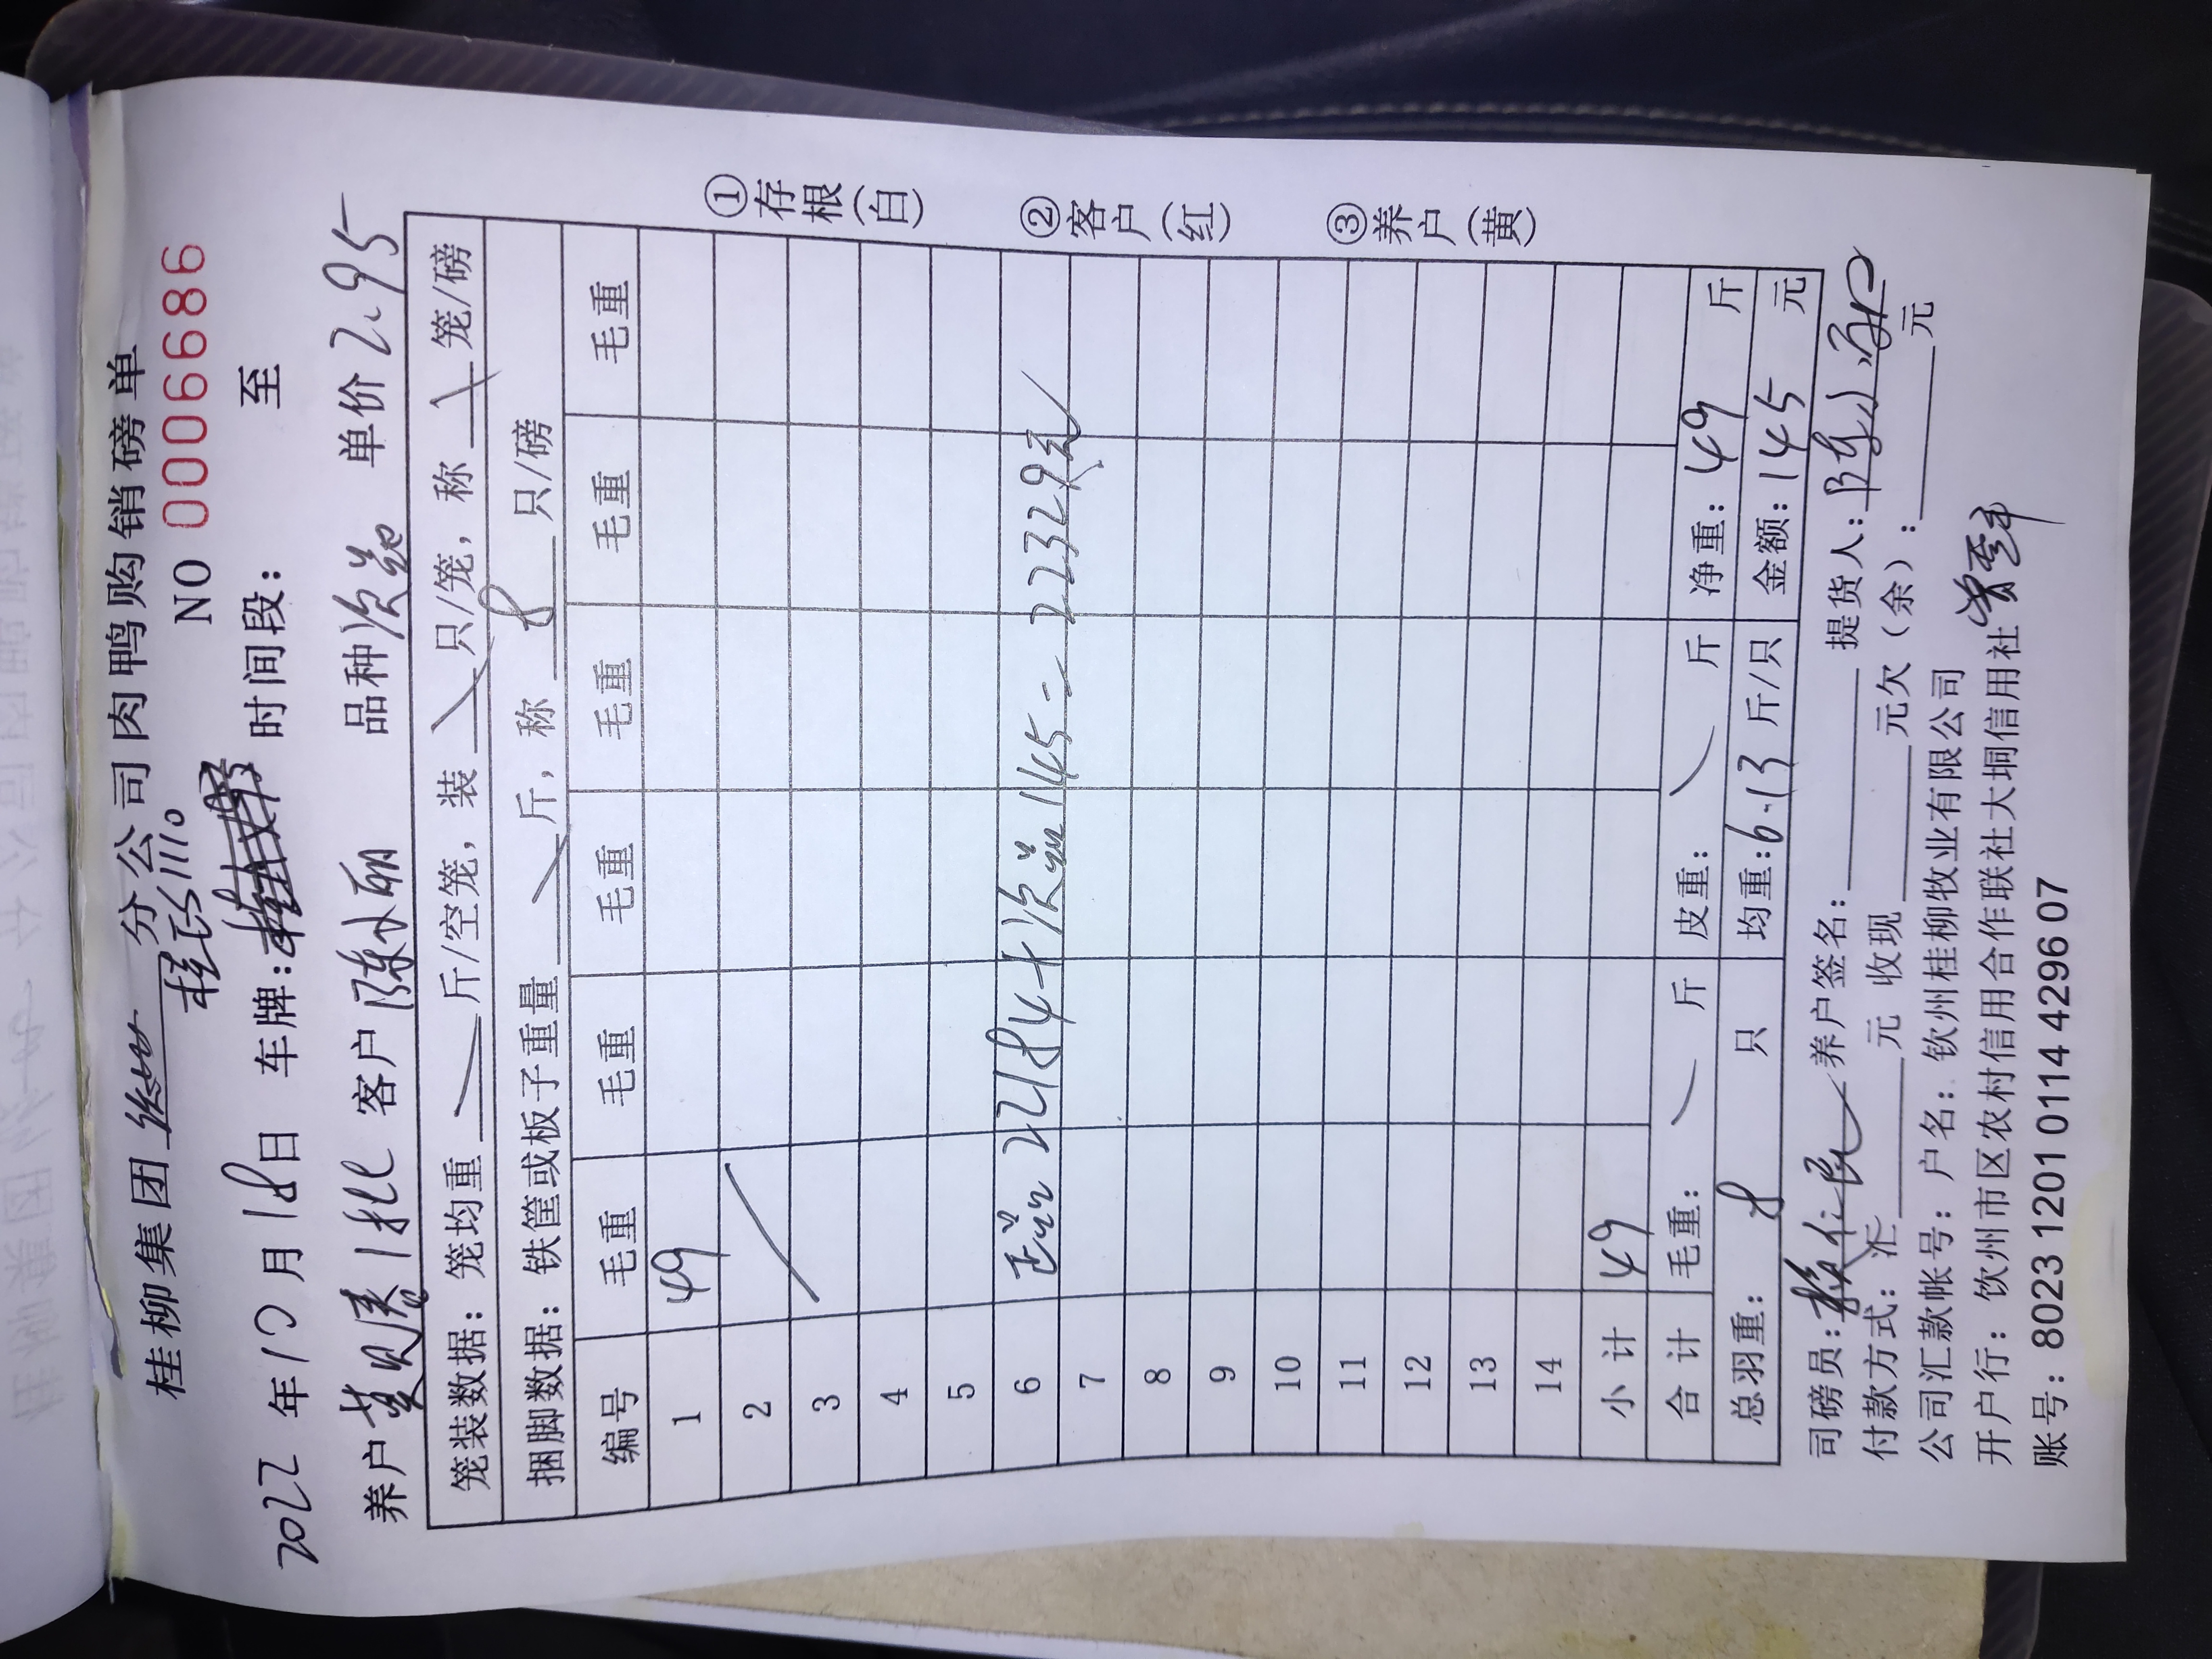 桂柳集团 分公司肉鸭购销磅单
NO 0006686
2022 年 10 月 18 日 车牌: 时间段: 至
养户 1批 客户 陈小丽 品种 次益 单价 2.95
笼装数据: 笼均重 斤/空笼, 装 只/笼, 称 笼/磅
捆脚数据: 铁筐或板子重量 斤, 称 8 只/磅
编号 毛重 毛重 毛重 毛重 毛重 毛重
1 49
2
3
4
5
6 正益 22184 + 次益 145 = 22329元
7
8
9
10
11
12
13
14
小计 49
合计 毛重: 斤 皮重: 斤 净重: 49 斤
总羽重: 8 只 均重: 6.13 斤/只 金额: 145 元
司磅员: 养户签名: 提货人:
付款方式: 汇 元 收现 元欠(余): 元
公司汇款帐号: 户名: 钦州桂柳牧业有限公司
开户行: 钦州市区农村信用合作联社大垌信用社
账号: 8023 1201 0114 4296 07
①存根(白)
②客户(红)
③养户(黄)